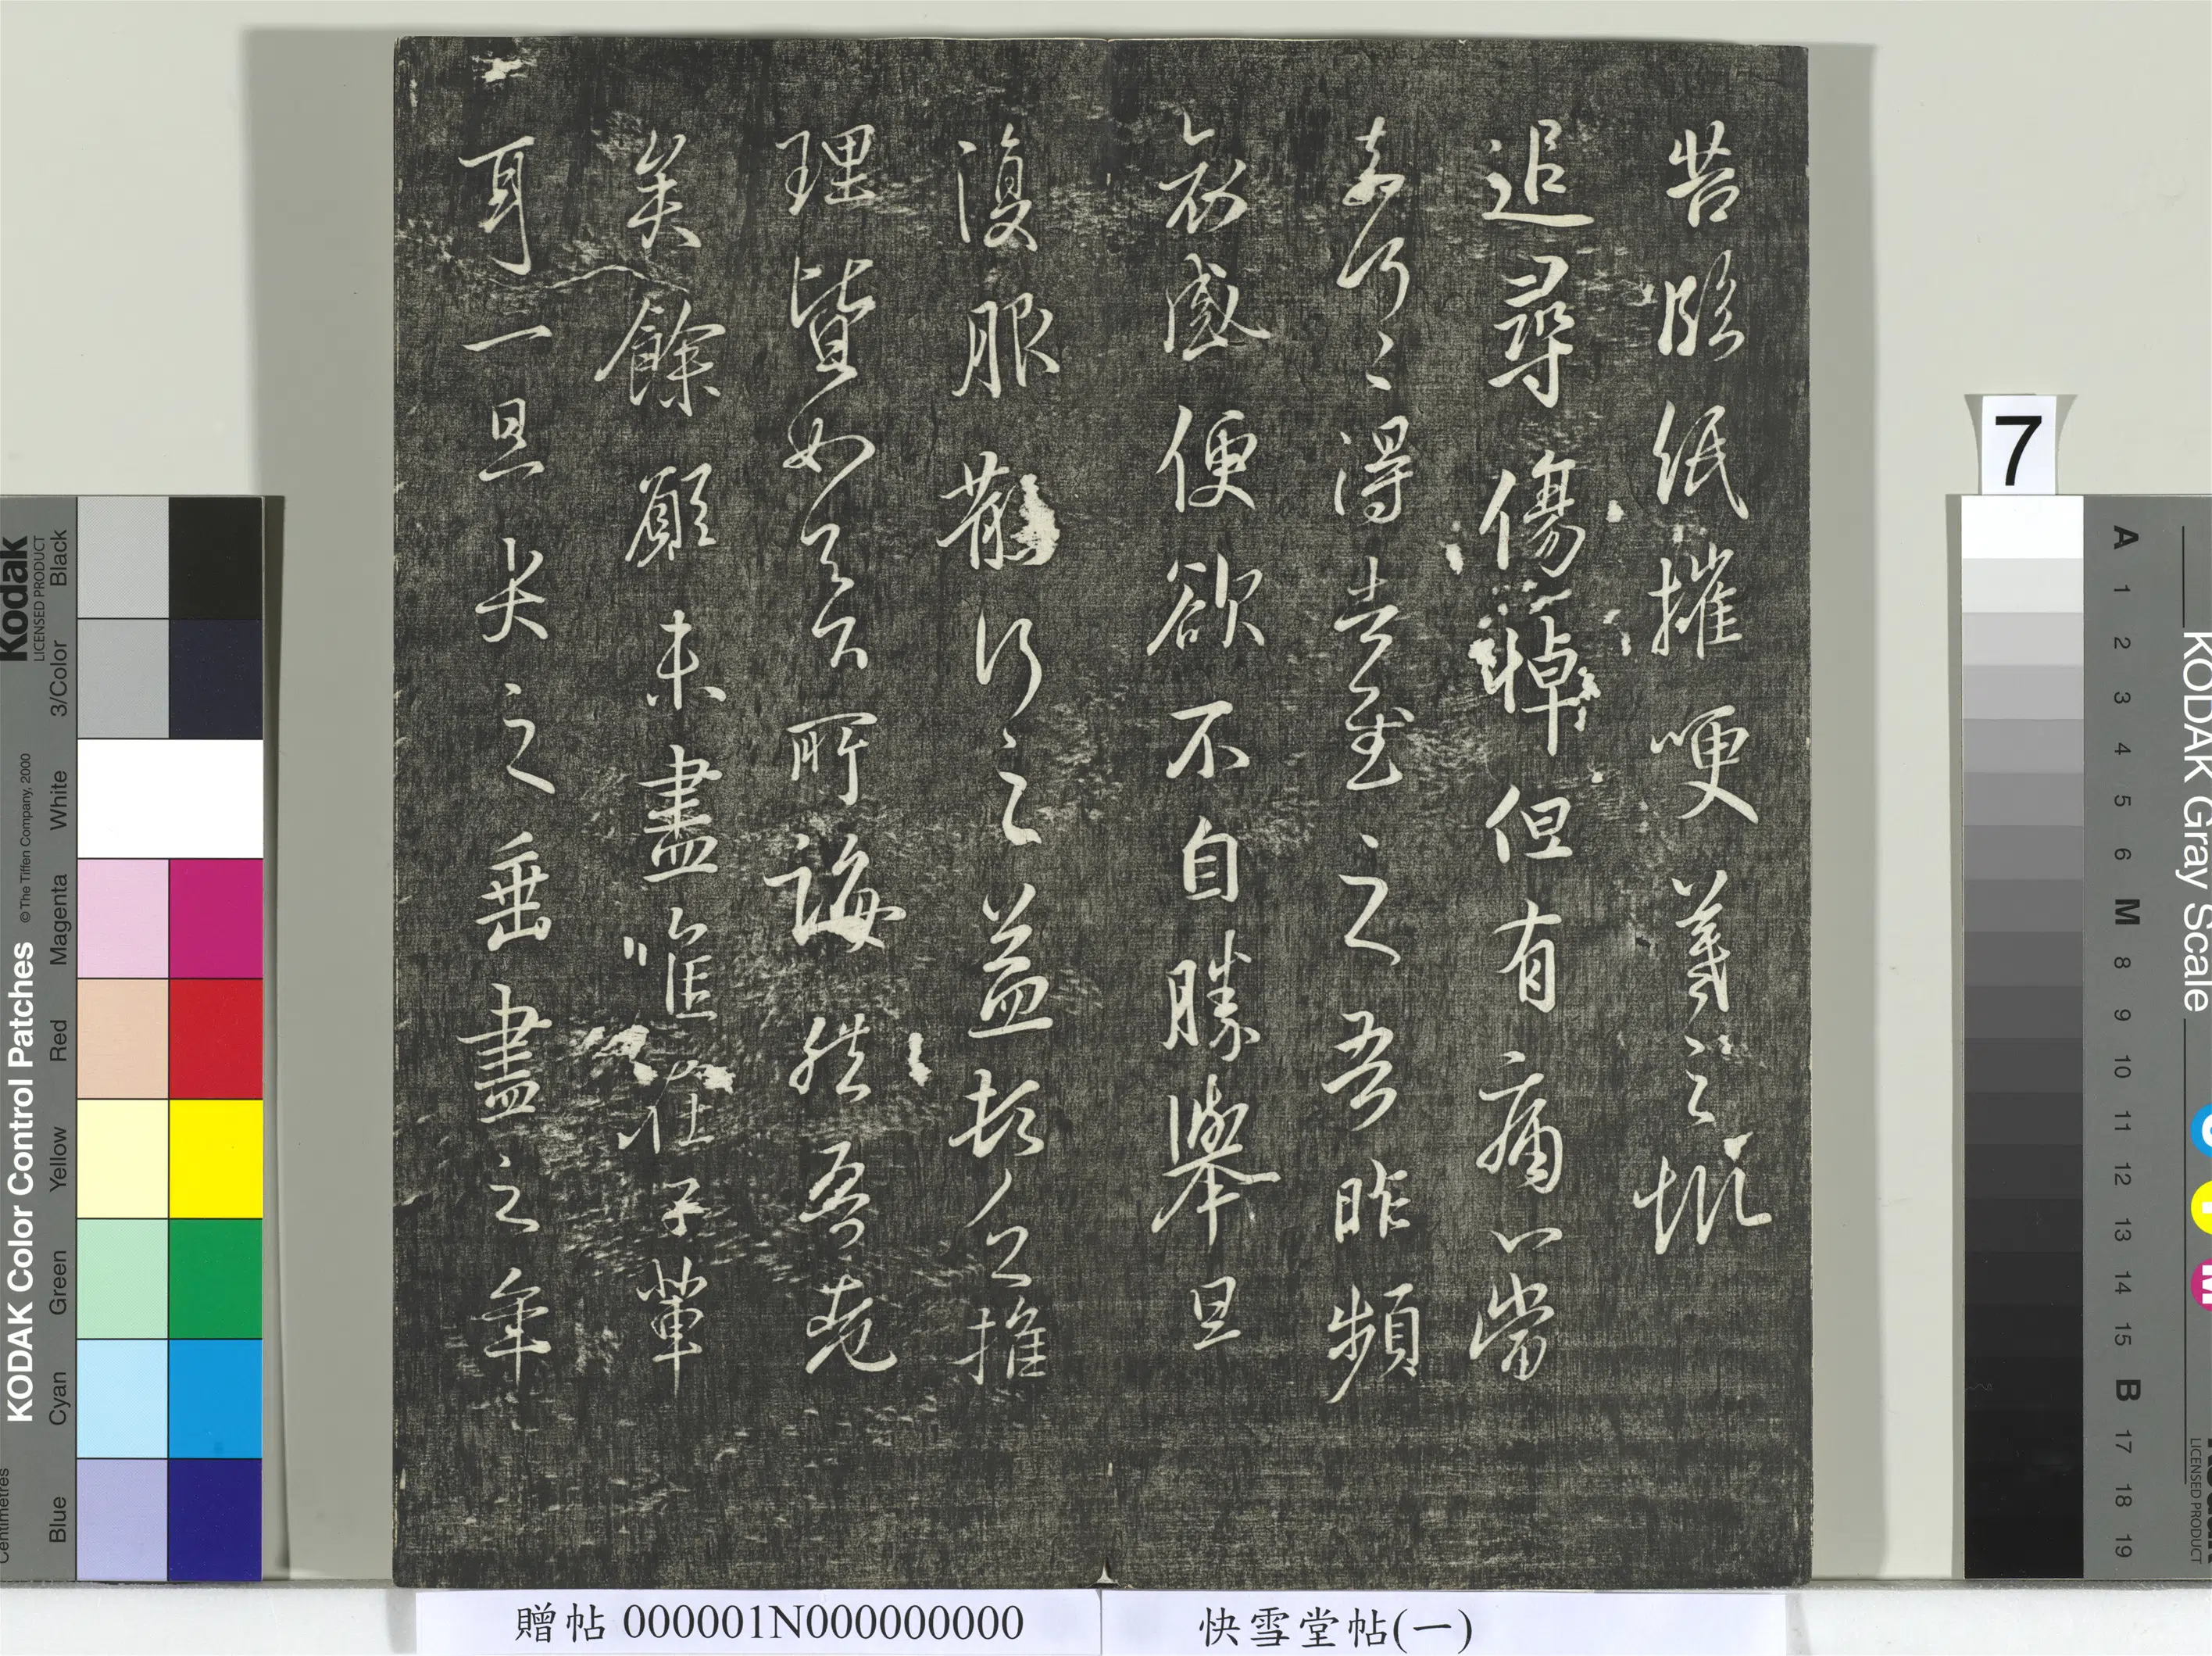 苦臨紙摧哽羲之慨
追尋傷悼但有痛心當
奈何奈何得告慰之吾昨頻
哀感便欲不自勝舉旦
復服散行之益頓乏推
理皆如足下所誨然吾老
矣餘願未盡唯在子輩
耳一旦哭之垂盡之年
7
贈帖 000001N000000000
快雪堂帖(一)
Kodak
LICENSED PRODUCT
KODAK Color Control Patches
© The Tiffen Company, 2000
Centimetres
Blue
Cyan
Green
Yellow
Red
Magenta
White
3/Color
Black
KODAK Gray Scale
A 1 2 3 4 5 6 M 8 9 10 11 12 13 14 15 B 17 18 19
LICENSED PRODUCT
C
Y
M